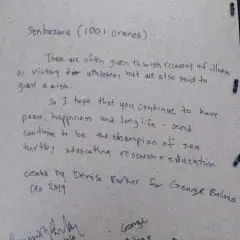 Senbazuru (1001 cranes)
These are often given to wish recovery of illness
or victory for athletes but are also said to
grant a wish.
So I hope that you continue to have
peace, happiness and long life - and
continue to be the champion of sea
turtles advocating research & education
created by Denise Parker for George Balazs
Dec 2019
George